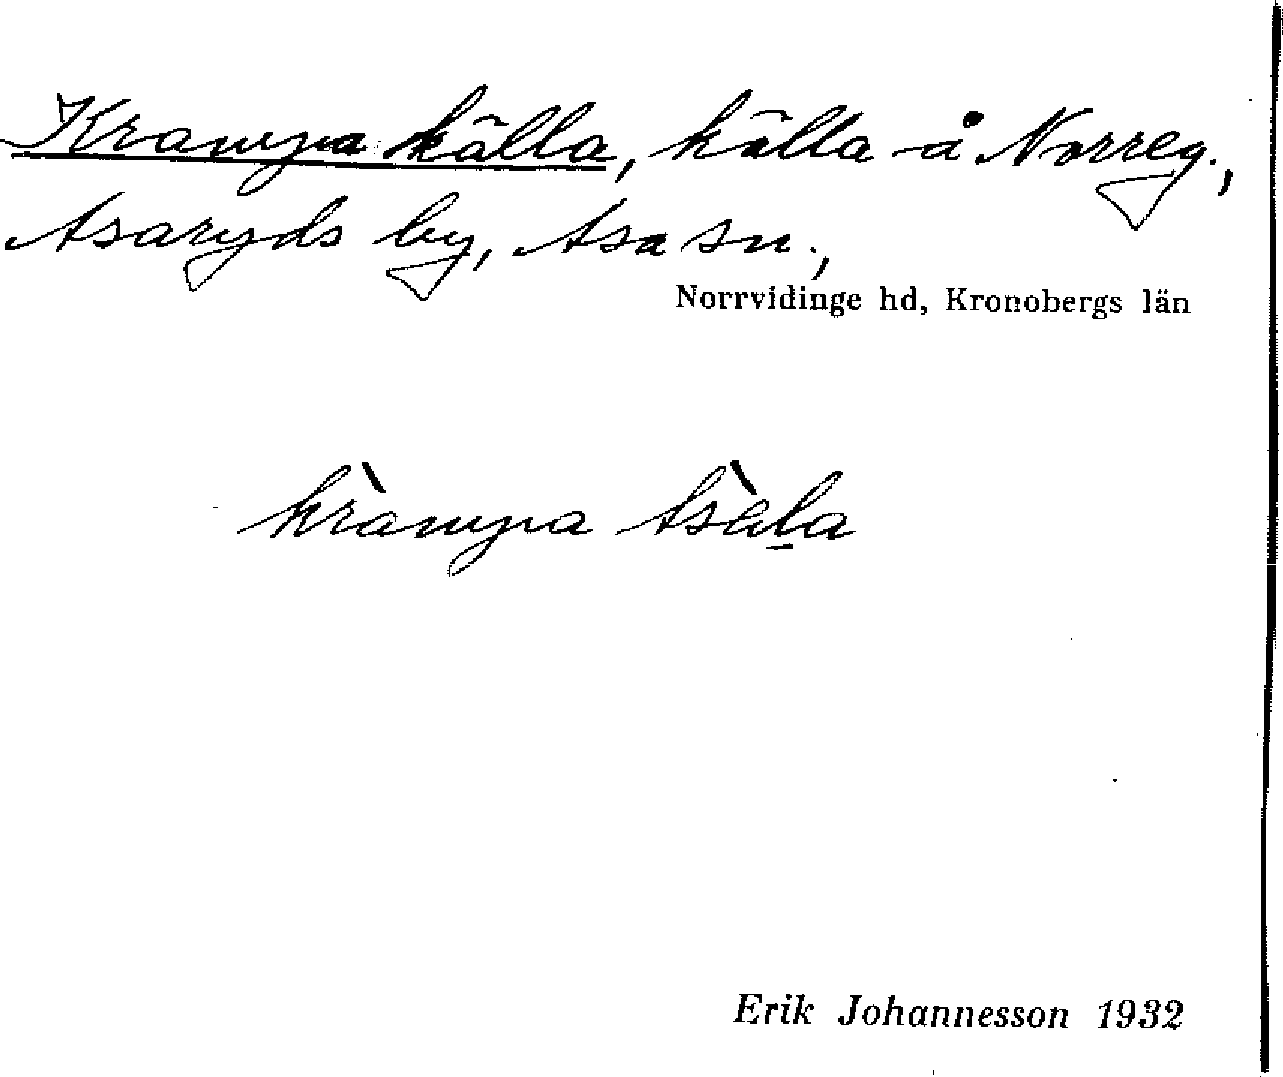 Krampa källa, källa å Norreg.,
Asaryds by, Asa sn.,
Norrvidinge hd, Kronobergs län
kràmpa tsɛ̀l̠a
Erik Johannesson 1932